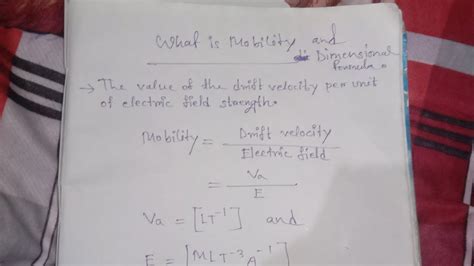 What is Mobility and
Dimensional
formula.
→ The value of the drift velocity per unit
of electric field strength.
Mobility = Drift velocity
Electric field
= Va
E
Va = [LT⁻¹] and
E = [MLT⁻³A⁻¹]